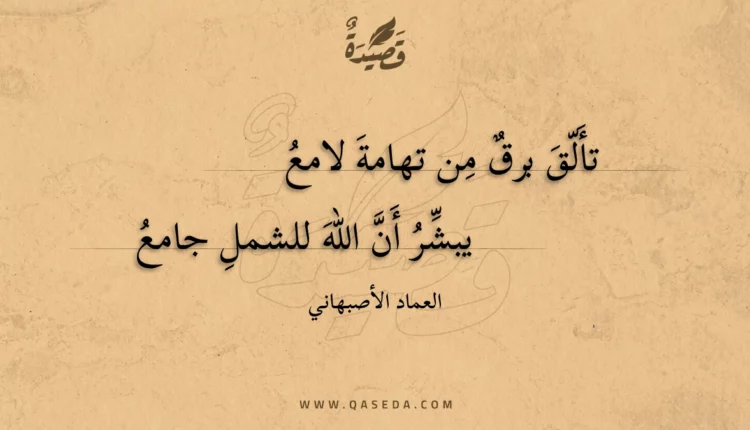 قَصِيْدَةٌ
تألّقَ برقٌ مِن تهامةَ لامعُ
يبشِّرُ أَنَّ اللّهَ للشملِ جامعُ
العماد الأصبهاني
WWW.QASEDA.COM